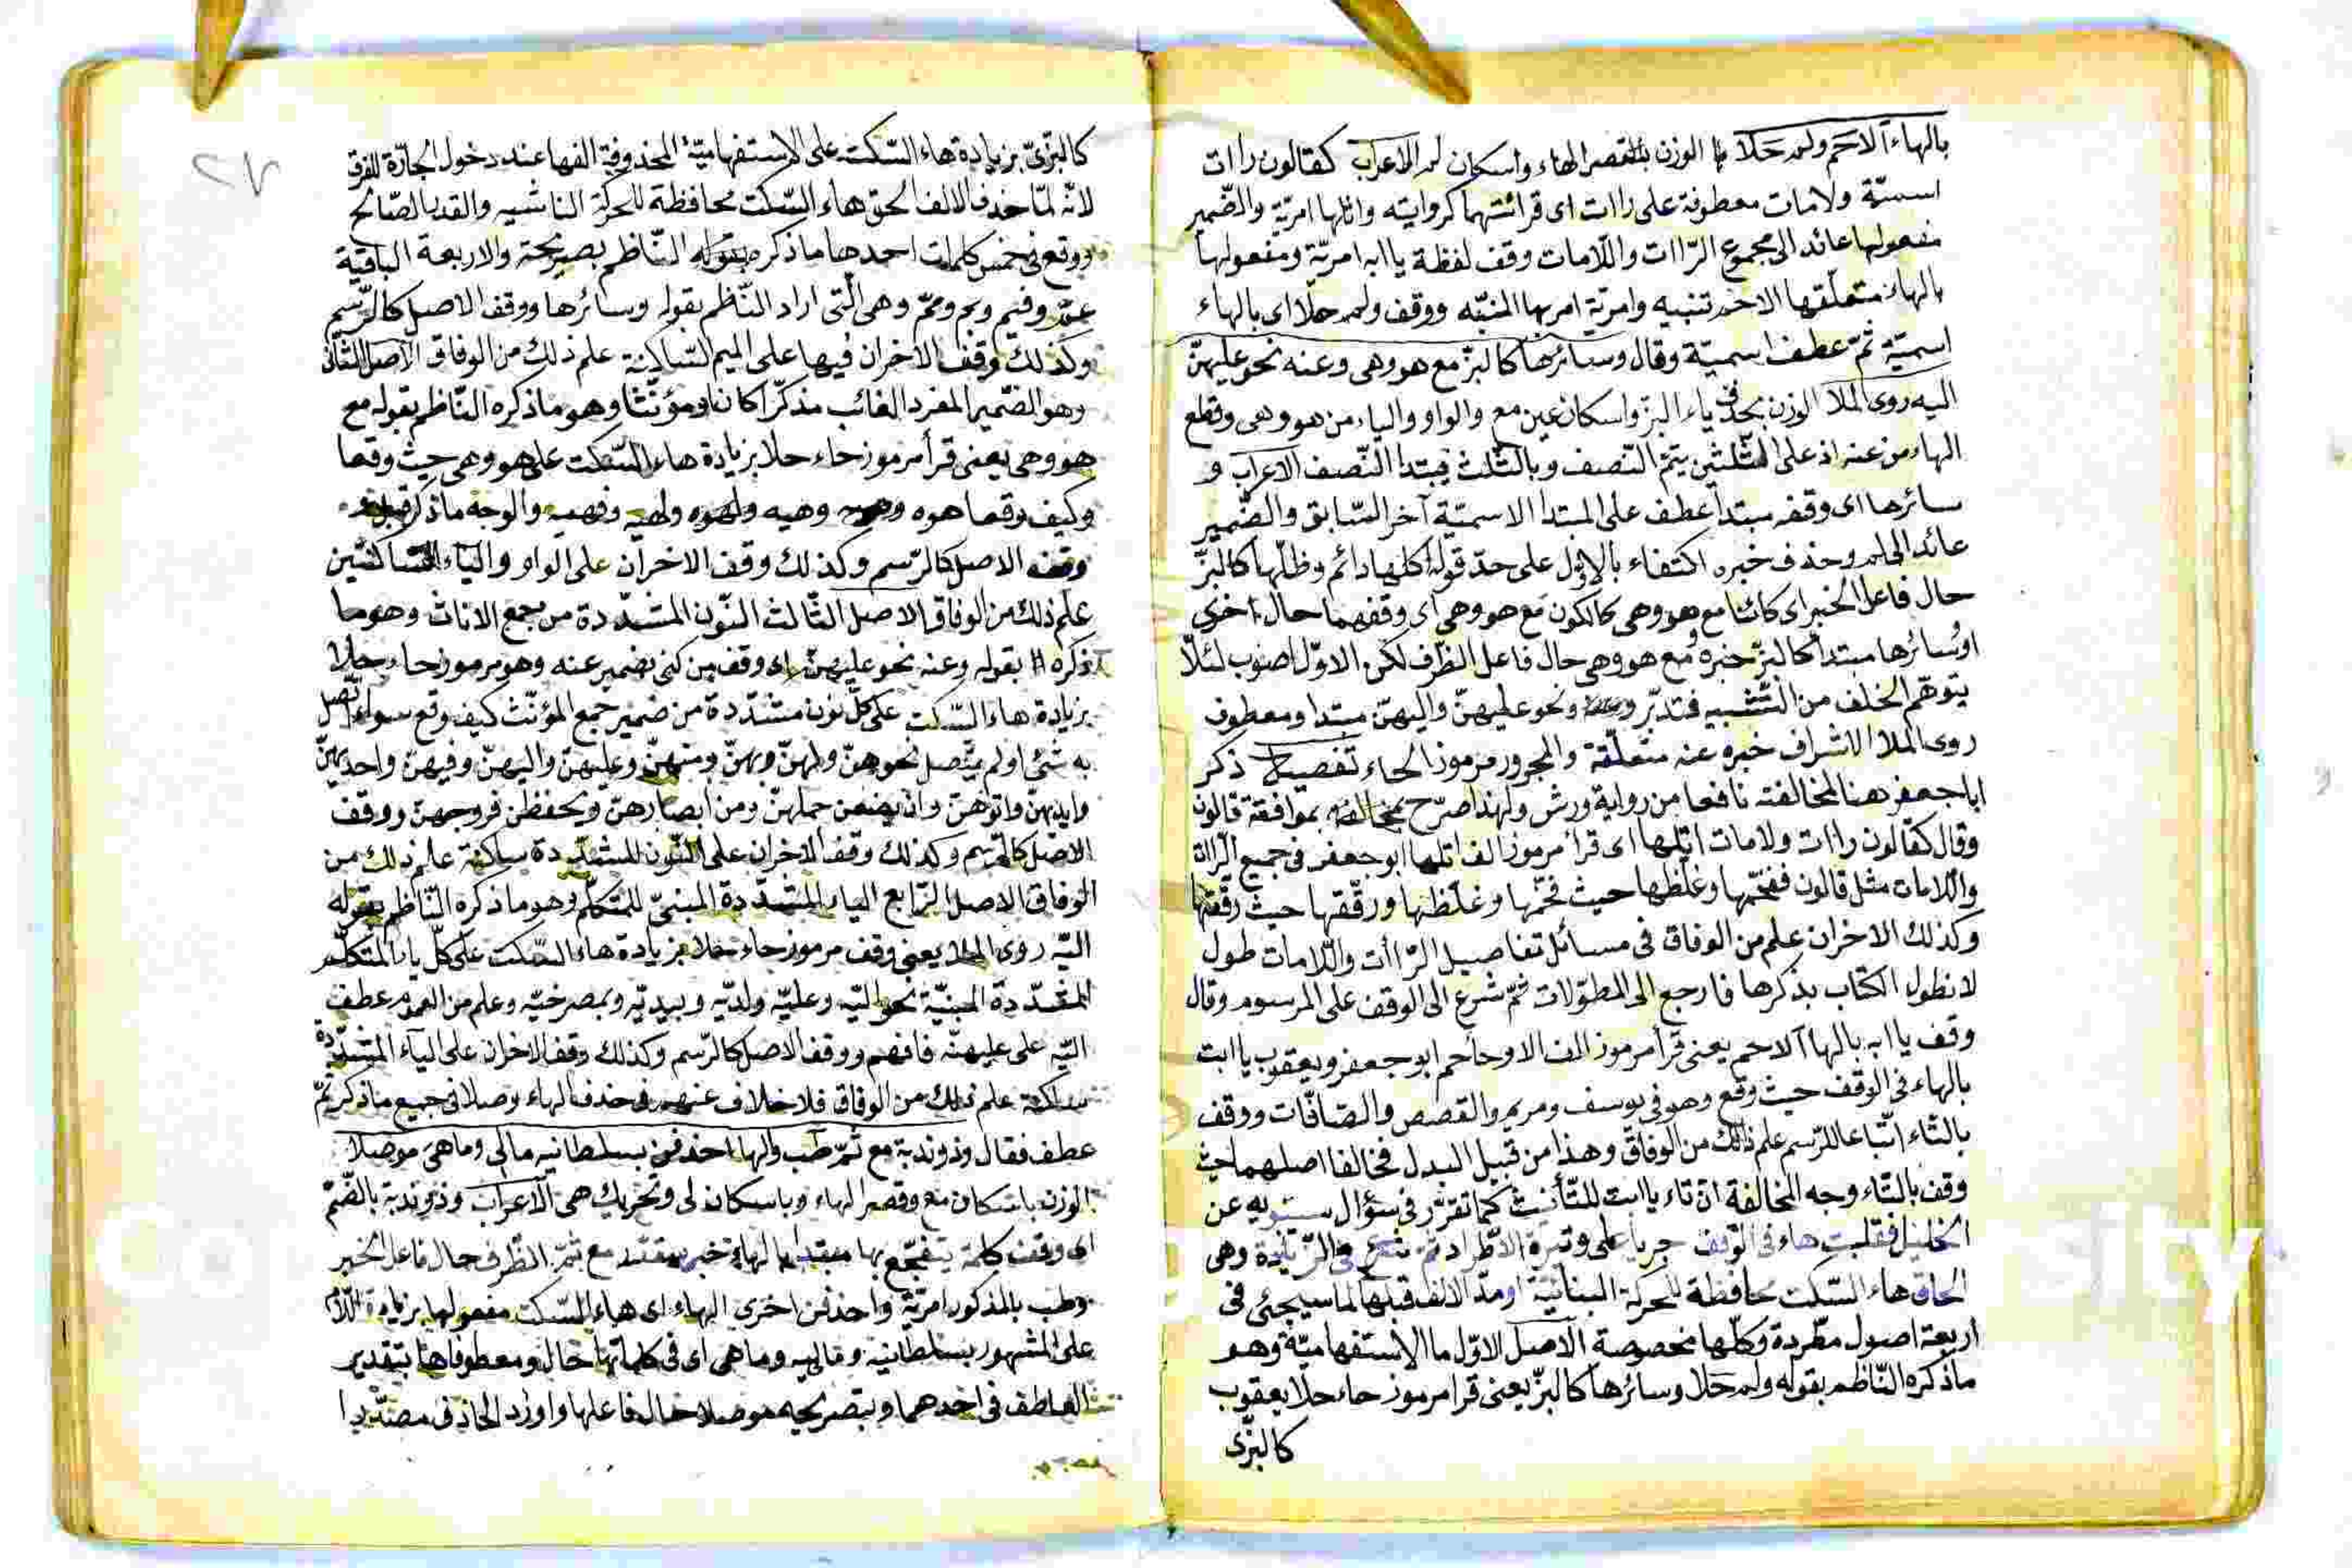 بالهاء ألا حم ولم حلا الوزن بالقصر الهاء واسكان لم الاعراب كقالون راات
اسميّة ولامات معطوفة على راات اى قرائتهما كروايته واتلها امريّة والضّمير
مفعولها عائد الى مجموع الرّاات واللّامات وقف لفظة يا ابه امريّة ومفعولها
بالهاء متعلّقها الا حرف تنبيه وامريّة امر بها المنبّه ووقف ولم حلا اى بالهاء
اسميّة ثمّ عطف اسميّة وقال وسائرها كالبزّ مع هو وهى وعنه نحو عليهنّ
اليه روى الملا الوزن بحذف ياء البزّ واسكان عين مع والواو والياء من هو وهى وقطع
الهاء من عنه اذ على الثّلثين يتمّ النّصف وبالثّلث يبتدا النّصف الاعراب و
سائرها اى وقفه مبتدأ عطف على المبتدا الاسميّة آخر السّابق والضّمير
عائد الى لم وحذف خبره اكتفاء بالاوّل على حدّ قوله اكلها دائم وظلّها كالبزّ
حال فاعل الخبر اى كائنا مع هو وهى كالكون مع هو وهى اى وقفهما حال اخرى
او سائرها مبتدأ كالبزّ خبره ومع هو وهى حال فاعل الظّرف لكن الاوّل اصوب لئلّا
يتوهّم الخلف من التّشبيه فتدبّر ونحو عليهنّ واليهنّ مبتدا ومعطوف
روى الملا الاشراف خبره عنه متعلّقة والمجرور مرموز الحاء تفصيل ذكر
ابا جعفر هنا لمخالفته نافعا من رواية ورش ولهذا صرّح بموافقة قالون
وقال كقالون راات ولامات اتلها اى قرأ مرموز الف اتلها ابو جعفر فى جميع الرّاات
واللامات مثل قالون ففخّمها وغلّظها حيث فخّمها وغلّظها ورقّقها حيث رقّقها
وكذلك الاخران علم من الوفاق فى مسائل تفاصيل الرّاات واللّامات طول
لا نطول الكتاب بذكرها فارجع الى المطوّلات ثمّ شرع الى الوقف على المرسوم وقال
وقف يا ابه بالها ألا حم يعنى قرأ مرموز الف الا وحا حم ابو جعفر ويعقوب يا ابت
بالهاء فى الوقف حيث وقع وهو فى يوسف ومريم والقصص والصّافّات ووقف
بالتّاء اتّباعا للرّسم علم ذلك من الوفاق وهذا من قبيل البدل فخالفا اصلهما حيث
وقف بالتّاء وجه المخالفة انّ تاء يا ابت للتّأنيث كما تقرّر فى سؤال سيبويه عن
الخليل فقلبت هاء فى الوقف جريا على وتيرة الاطّراد ثمّ شرع فى الزّيادة وهى
الحاق هاء السّكت محافظة للحركة البنائيّة او مدّ الالف قبلها لما سيجئى فى
اربعة اصول مطّردة وكلّها مخصوصة الاصل الاوّل ما الاستفهاميّة وهو
ما ذكره النّاظم بقوله ولم حلا وسائرها كالبزّ يعنى قرأ مرموز حاء حلا يعقوب
كالبزّى
٢٧
كالبزّىّ بزيادة هاء السّكت على الاستفهاميّة المحذوفة الفها عند دخول الجارّة للفرق
لانّه لمّا حذف الالف الحق هاء السّكت محافظة للحركة
ووقع فى خمس كلمات احدها ما ذكره النّاظم بصريحه والاربعة الباقية
عمّ وفيم وبم وممّ وهى الّتى اراد النّاظم بقوله وسائرها ووقف الاصل كالرّسم
وكذلك وقف الاخران فيها على الميم السّاكنة علم ذلك من الوفاق الاصل الثّانى
وهو الضّمير المفرد الغائب مذكّرا كان او مؤنّثا وهو ما ذكره النّاظم بقوله مع
هو وهى يعنى قرأ مرموز حاء حلا بزيادة هاء السّكت على هو وهى حيث وقعا
وكيف وقعا هوه وهيه ولهوه ولهيه وفهيه والوجه ما ذكر
وقف الاصل كالرّسم وكذلك وقف الاخران على الواو والياء السّاكنتين
علم ذلك من الوفاق الاصل الثّالث النّون المشدّدة من جمع الاناث وهو ما
ذكره بقوله وعنه نحو عليهنّ اى وقف من كنى بضمير عنه وهو مرموز حاء حلا
بزيادة هاء السّكت على كلّ نون مشدّدة من ضمير جمع المؤنّث كيف وقع سواء اتّصل
به شئى او لم يتّصل نحو هنّ ولهنّ وبهنّ ومنهنّ وعليهنّ واليهنّ وفيهنّ واحديهنّ
وايديهنّ واتوهنّ وان يضعن حملهنّ ومن ابصارهنّ ويحفظن فروجهنّ ووقف
الاصل كالرّسم وكذلك وقف الاخران على النّون المشدّدة ساكنة علم ذلك من
الوفاق الاصل الرّابع الياء المشدّدة المبنىّ للمتكلّم وهو ما ذكره النّاظم بقوله
اليّه روى الملا يعنى وقف مرموز حاء حلا بزيادة هاء السّكت على كلّ ياء المتكلّم
المشدّدة المبنيّة نحو اليّه وعليّه ولديّه وبيديّه وبمصرخيّه وعلم من العموم عطف
اليّه على عليهنّه فافهم ووقف الاصل كالرّسم وكذلك وقف الاخران على الياء المشدّدة
ساكنة علم ذلك من الوفاق فلا خلاف عنهم فى حذف الهاء وصلا فى جميع ما ذكر ثمّ
عطف فقال وذو ندبة مع ثمّ طب ولها احذفن بسلطانيه مالى وماهى موصلا
الوزن باسكان مع وقصر الهاء وباسكان لى وتحريك هى الاعراب وذو ندبة بالضّمّ
اى وقف كلمة يتفجّع بها مبتدا بالهاء خبر مقدّر مع ثمّ الظّرف حال فاعل الخبر
وطب بالمذكور امريّة واحذفن اخرى الهاء اى هاء السّكت مفعولها بزيادة اللّام
على المشهور بسلطانيه وماليه وماهى اى فى كلماتها حال ومعطوفاها بتقدير
العاطف فى احدهما وبتصريحه موصلا حال فاعلها واورد الحاذف